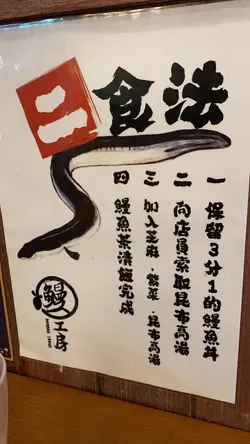 二食法
一 保留3分1的鰻魚丼
二 向店員索取昆布高湯
三 加入芝麻．紫菜．昆布高湯
四 鰻魚茶漬飯完成
鰻
工房